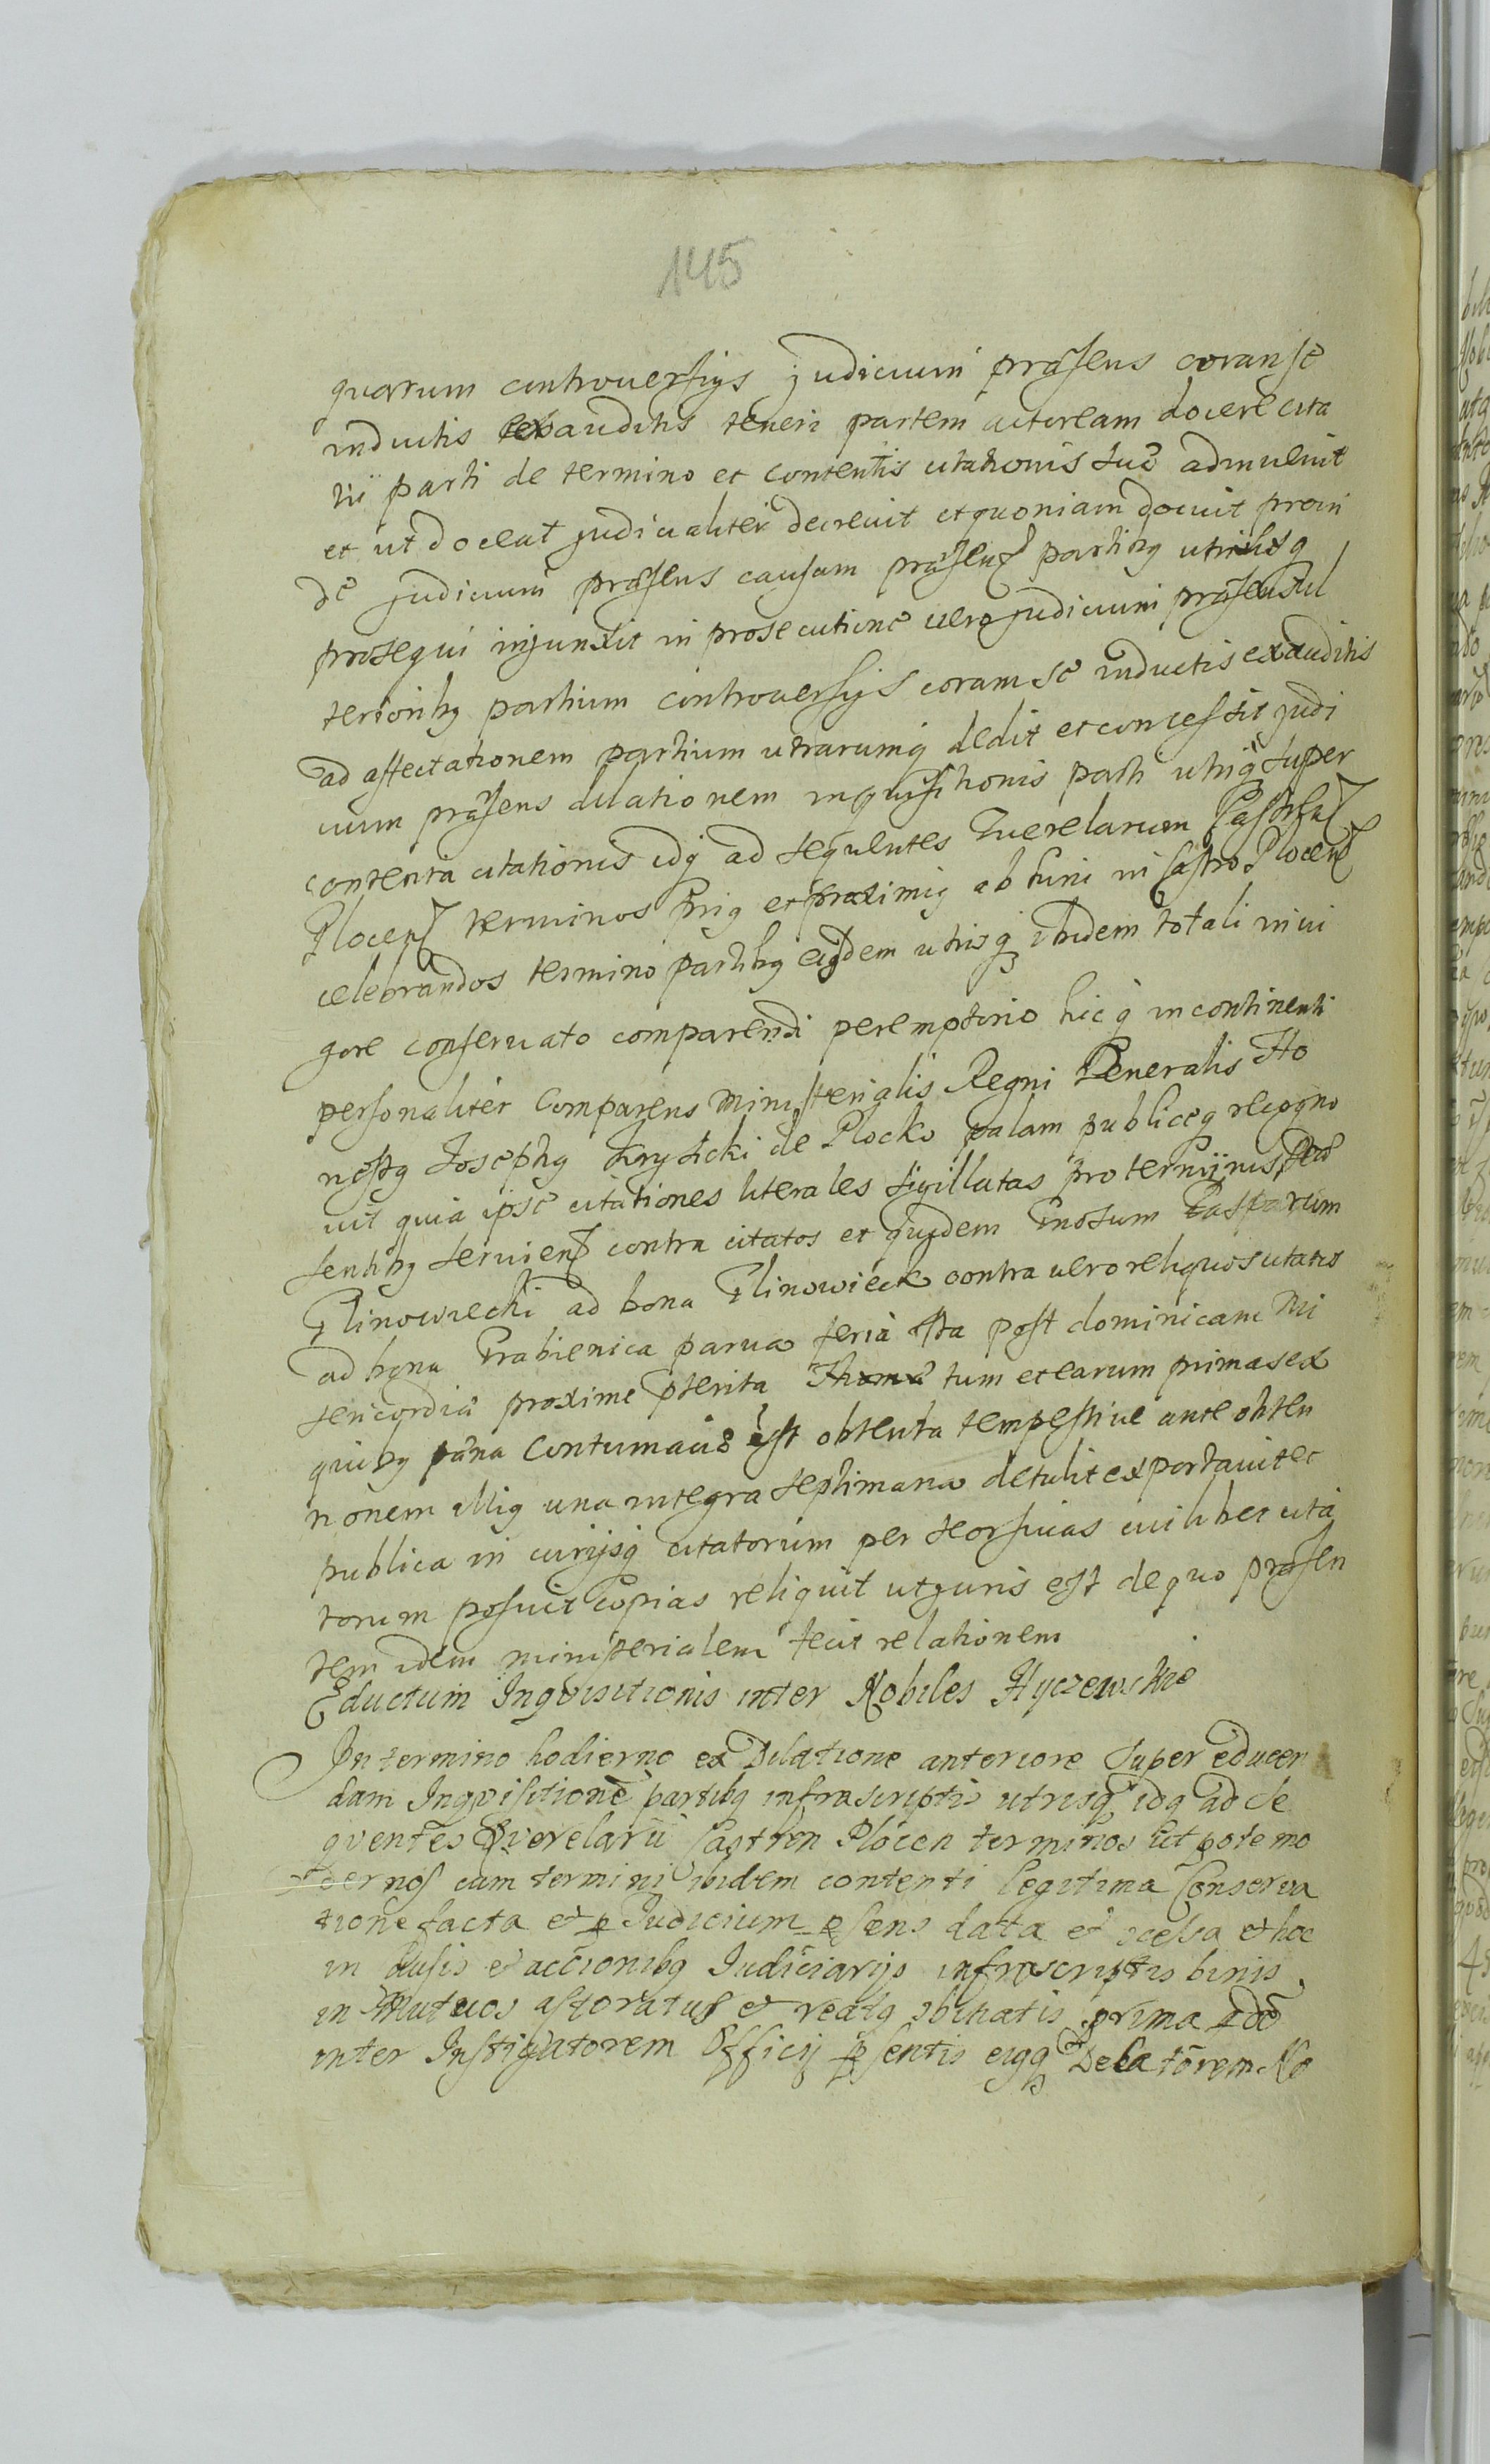 145
quarum controuersiys judicium præsens coram se
inductis exauditis teneri partem actoream docere cita
tæ parti de termino et contentis citationis suæ adinuenit
et ut doceat judicialiter decreuit et quoniam docuit proin
de judicium præsens causam præsenȝ partibq utrisq
prosequi injunxit in prosecutione uero judicium præsens ul
terioribq partium controuersijs coram se inductis exauditis
ad affectationem partium utrarumq dedit et concessit judi
cium præsens dilationem inquisitionis parti utriq super
contenta citationis idq ad sequentes Querelarum Castrenȝ
Plocenȝ terminos priq et proximiq ab hinc in Castro Plocenȝ
celebrandos termino partibq eisdem utrisq ibidem totali in ui
gore conseruato comparendi peremptorio hicq in continenti
personaliter Comparens ministerialis Regni Generalis Ho
nestq Josephq Krysicki de Plocko palam publiceq recogno
uit quia ipse citationes literales sigillatas pro terminis præ
sentibq seruienȝ contra citatos et quidem Gnosum Casparum
Glinowiecki ad bona Glinowieck contra uero reliquos citatos
ad bona Grabienica parua feria 4ta post dominicam Mi
sericordiæ proxime pterita tum et earum primas ex
quibq pæna Contumaciæ est obtenta tempestiue ante obten
tionem illiq una integra septimana detulit exportauit et
publica in curijsq citatorum per seorsiuas cuilibet cita
torum posuit copias reliquit ut juris est de quo præsen
tem idem ministerialem fecit relationem
Eductum Inqvisitionis inter Nobiles Hyczewskie
In termino hodierno ex Dilatione anteriore Super educen
dam Inqvisitione partibq infrascriptis utrisq idq ad se
qventes Qverelarū Castren Plocen terminos ut pote mo
dernos cum termini ibidem contenti legitima Conserva
tione facta et p Judicium psens data et scessa et hoc
in causis et actionibq Judiciarijs infrascriptis binis
in Mutuos actoratus et reatq sbinatis prima qdē
inter Instigatorem Officij psentis eiqq Delatorem No